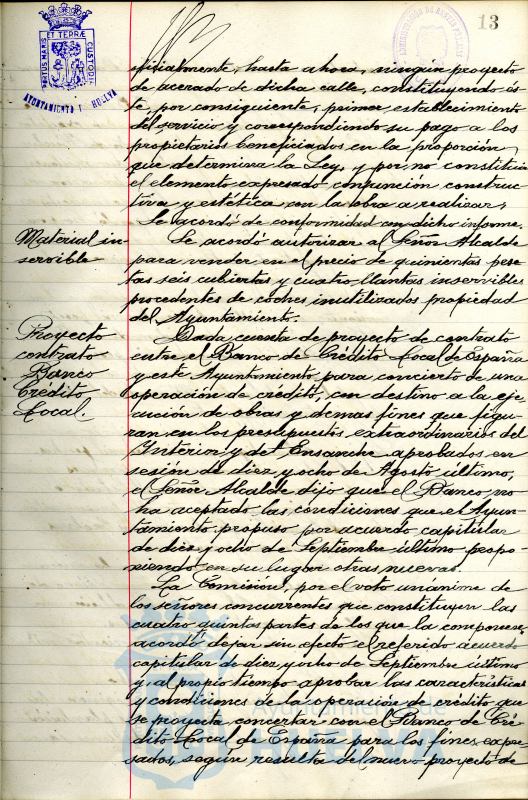 13
PORTUS MARIS ET TERRÆ CUSTODIA
AYUNTAMIENTO HUELVA
oficialmente, hasta ahora, ningun proyecto
de acerado de dicha calle, constituyendo és-
te por consiguiente, primer establecimiento
del servicio y correspondiendo su pago a los
propietarios beneficiados en la proporcion
que determina la Ley, y por no constituir
el elemento expresado conjunción construc-
tiva y estética con la obra a realizar,
Se acordó de conformidad con dicho informe.
Material in-
servible
Se acordó autorizar al Señor Alcalde
para vender en el precio de quinientas pese-
tas seis cubiertas y cuatro llantas inservibles
procedentes de coches inutilizados propiedad
del Ayuntamiento.
Proyecto
contrato
Banco
Crédito
Local.
Dada cuenta de proyecto de contrato
entre el Banco de Crédito Local de España
y este Ayuntamiento para concierto de una
operación de crédito, con destino a la eje-
cución de obras y demas fines que figu-
ran en los presupuestos extraordinarios del
Interior y del Ensanche aprobados en
sesión de diez y ocho de Agosto último,
el Señor Alcalde dijo que el Banco no
ha aceptado las condiciones que el Ayun-
tamiento propuso por acuerdo capitular
de diez y ocho de Septiembre último propo-
niendo en su lugar otras nuevas.
La Comisión, por el voto unánime de
los señores concurrentes que constituyen las
cuatro quintas partes de los que la componen,
acordó dejar sin efecto el referido acuerdo
capitular de diez y ocho de Septiembre último
y al propio tiempo aprobar las características
y condiciones de la operación de crédito que
se proyecta concertar con el Banco de Cré-
dito Local de España para los fines expre-
sados, según resulta del nuevo proyecto de
Ayuntamiento de
HUELVA